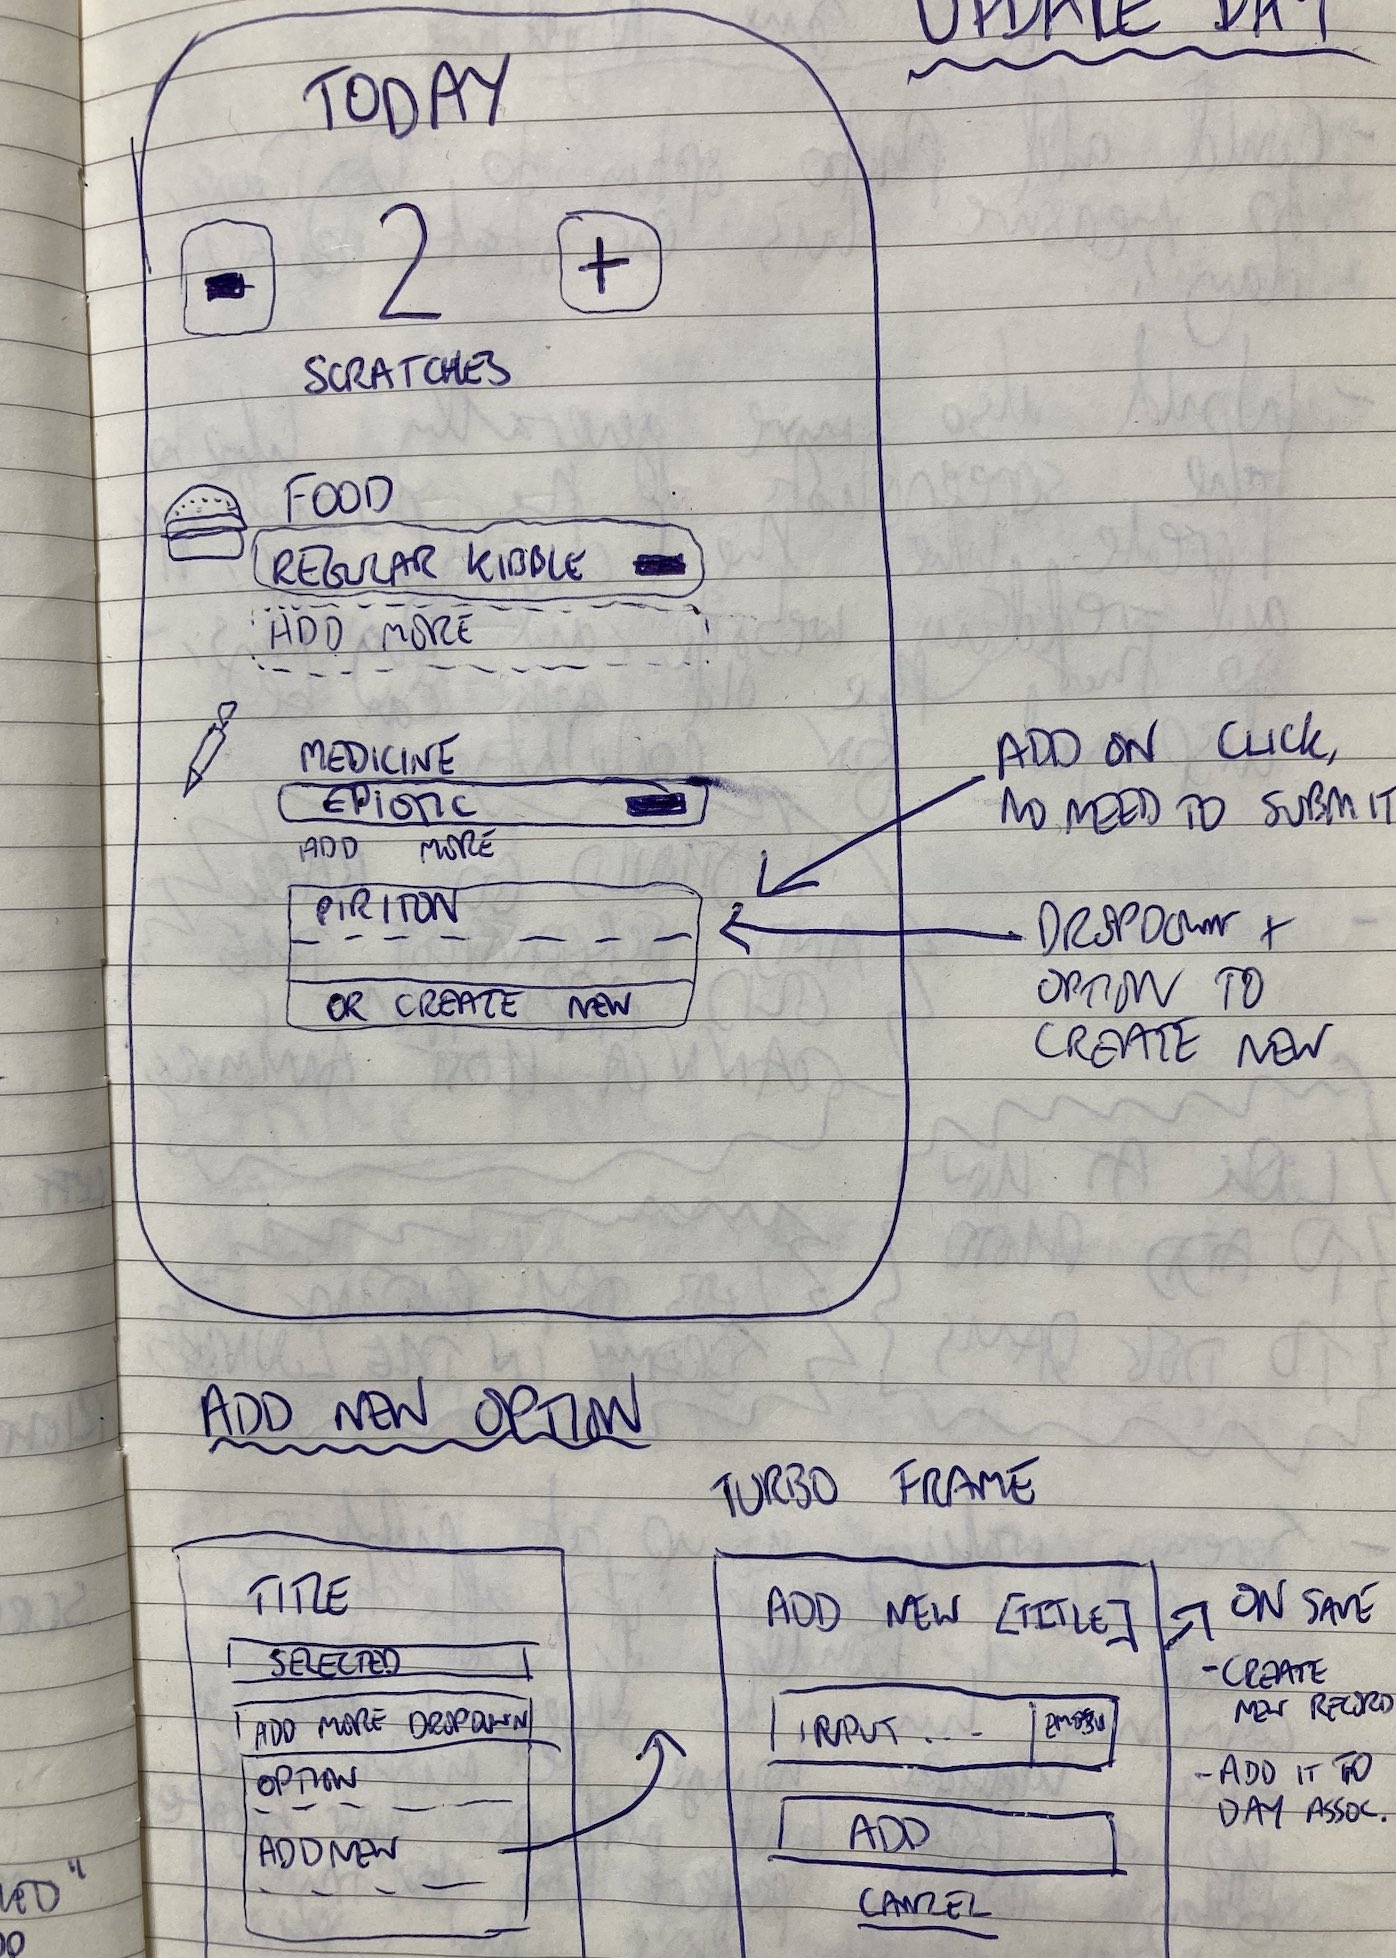 UPDATE DAY
TODAY
- 2 +
SCRATCHES
FOOD
REGULAR KIBBLE -
ADD MORE
MEDICINE
EPIOTIC -
ADD MORE
PIRITON
OR CREATE NEW
ADD ON CLICK,
NO NEED TO SUBMIT
DROPDOWN +
OPTION TO
CREATE NEW
ADD NEW OPTION
TITLE
SELECTED
ADD MORE DROPDOWN
OPTION
ADD NEW
TURBO FRAME
ADD NEW [TITLE]
INPUT... EMOJI
ADD
CANCEL
ON SAVE
- CREATE
NEW RECORD
- ADD IT TO
DAY ASSOC.